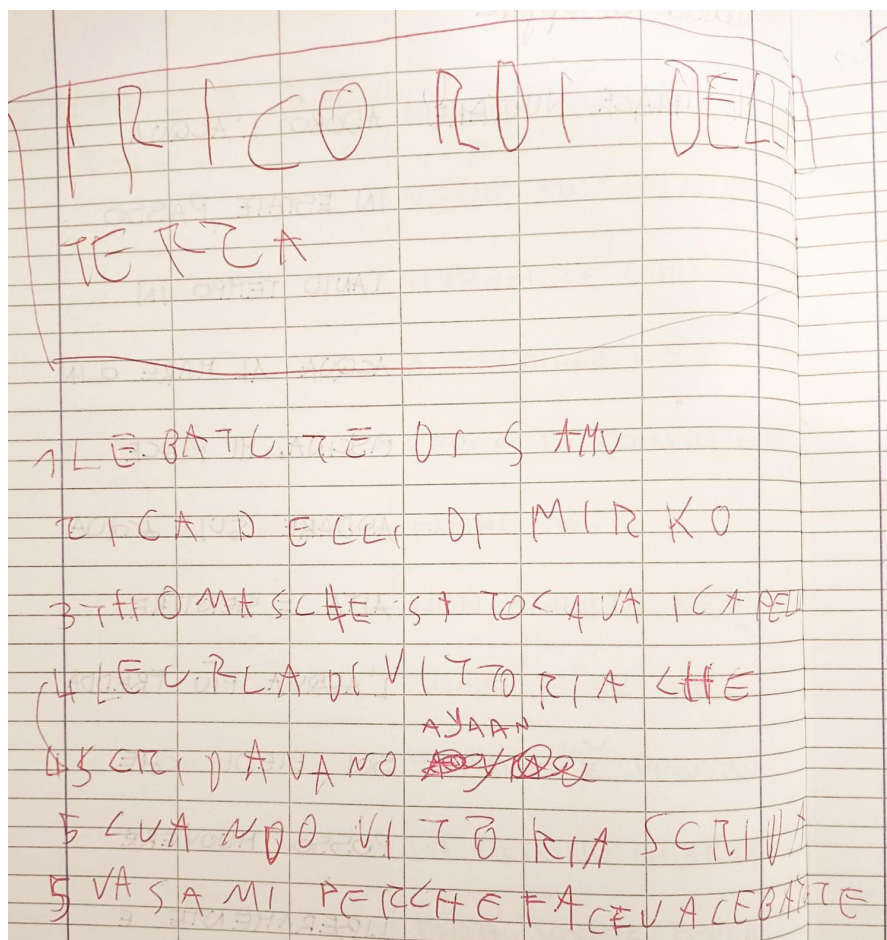 I RICORDI DELLA
TERZA
1 LE BATUTE DI SAMU
2 I CAPELLI DI MIRKO
3 THOMAS CHE SI TOCAVA I CAPELI
4 LE URLA DI VITTORIA CHE
AYAAN
4 SCRIDAVANO
5 CUANDO VITORIA SCRIVI
5 VA SAMI PERCHE FACEVA LE BATUTE